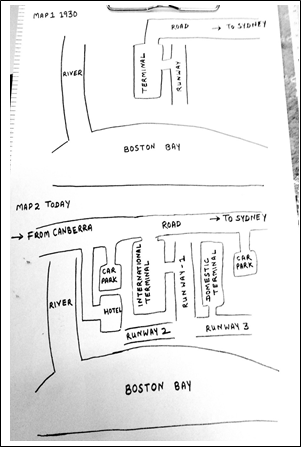 MAP 1 1930
ROAD → TO SYDNEY
RIVER
TERMINAL
RUNWAY
BOSTON BAY
MAP 2 TODAY
→ FROM CANBERRA
ROAD → TO SYDNEY
RIVER
CAR
PARK
HOTEL
INTERNATIONAL
TERMINAL
RUNWAY-1
DOMESTIC
TERMINAL
CAR
PARK
RUNWAY 2
RUNWAY 3
BOSTON BAY